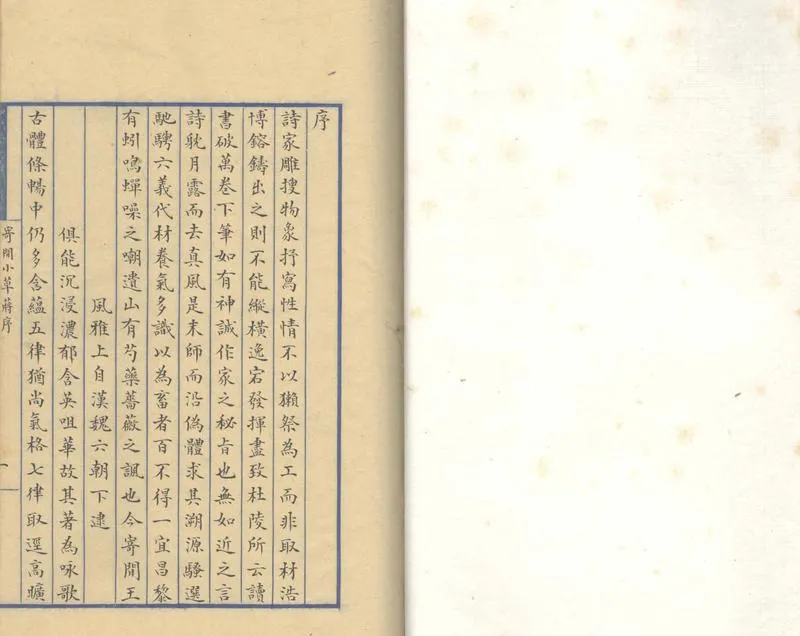 序
詩家雕搜物象抒寫性情不以獺祭為工而非取材浩
博鎔鑄出之則不能縱橫逸宕發揮盡致杜陵所云讀
書破萬卷下筆如有神誠作家之秘旨也無如近之言
詩耽月露而去真風是末師而沿偽體求其溯源騷選
馳騁六義代材養氣多識以為畜者百不得一宜昌黎
有蚓鳴蟬噪之嘲遺山有芍藥薔薇之諷也今寄閒王
風雅上自漢魏六朝下逮
俱能沉浸濃郁含英咀華故其著為咏歌
古體條暢中仍多含蘊五律猶尚氣格七律取逕高曠
寄閒小草蔣序
一